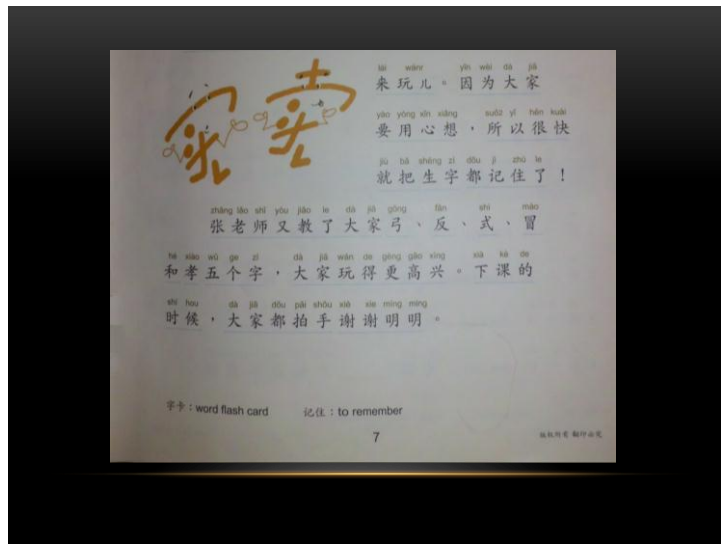 lái wánr yīn wèi dà jiā
来玩儿。因为大家
yào yòng xīn xiǎng suǒ yǐ hěn kuài
要用心想，所以很快
jiù bǎ shēng zì dōu jì zhù le
就把生字都记住了！
zhāng lǎo shī yòu jiāo le dà jiā gōng fǎn shì mào
张老师又教了大家弓、反、式、冒
hé xiào wǔ ge zì dà jiā wán de gèng gāo xìng xià kè de
和孝五个字，大家玩得更高兴。下课的
shí hou dà jiā dōu pāi shǒu xiè xie míng míng
时候，大家都拍手谢谢明明。
字卡：word flash card 记住：to remember
7
版权所有 翻印必究